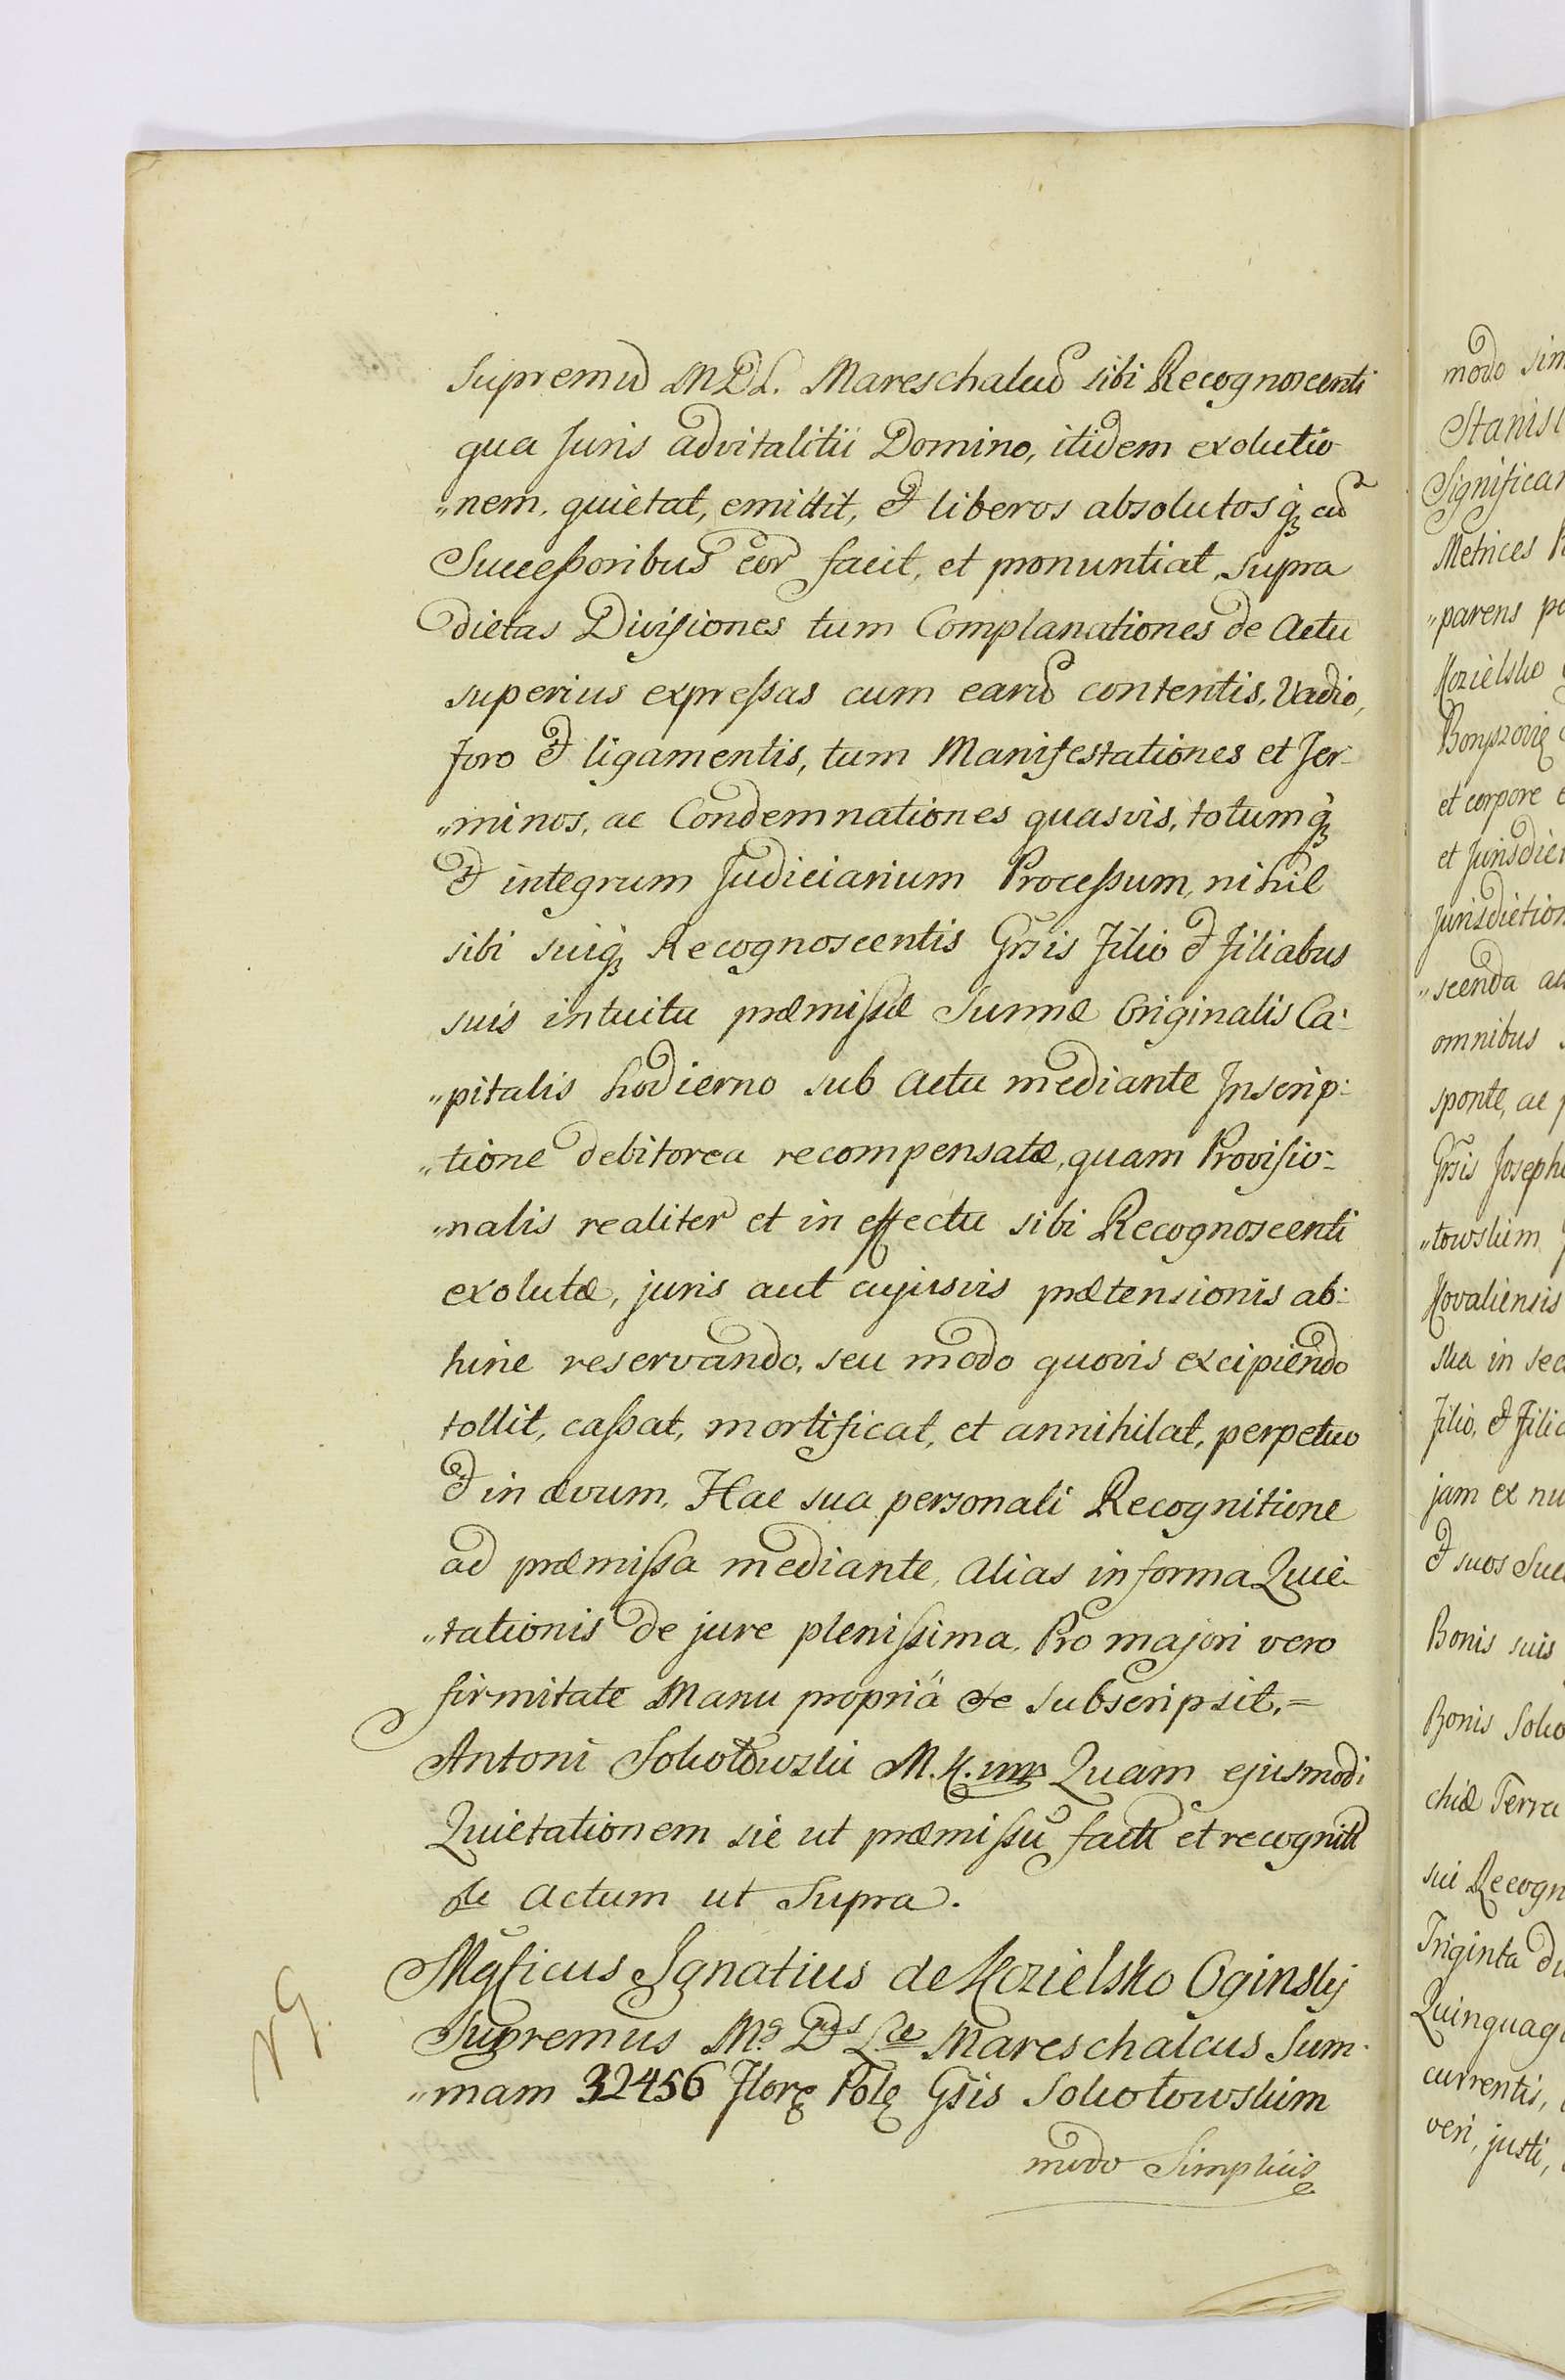 Supremus MDL. Mareschalcus sibi Recognoscenti
qua Juris advitalitii Domino, itidem exolutio
„nem, quietat, emittit, et liberos absolutosq; cum
Successoribus eor facit, et pronuntiat, supra
dictas Divisiones tum Complanationes de Actu
superius expressas cum earum contentis, Vadio,
foro et ligamentis, tum Manifestationes et Ter-
„minos, ac Condemnationes quasvis, totumq;
et integrum Judiciarium Processum, nihil
sibi suiq; Recognoscentis Grsis Filio et Filiabus
suis intuitu præmissæ Summæ Originalis Ca:
„pitalis hodierno sub Actu mediante Inscrip:
„tione debitorea recompensatæ, quam Provisio-
„nalis realiter et in effectu sibi Recognoscenti
exolutæ, juris aut cujusvis prætensionis ab:
hinc reservando, seu modo quovis excipiendo
tollit, cassat, mortificat, et annihilat, perpetuo
et in ævum, Hac sua personali Recognitione
ad præmissa mediante, alias in forma Quie-
„tationis de jure plenissima. Pro majori vero
firmitate Manu propriä se subscripsit.=
Antoni Sokołowski M.K. mp Quam ejusmodi
Quietationem sic ut præmissum factt et recognitt
Actum ut Supra.
Mgficus Ignatius de Kozielsko Oginskij
Supremus M. D. L. Mareschalcus Sum-
„mam 32456 Flor Pol Gsis Sokołowskim
modo Simplicis
NG.
modo sim
Stanisl
Significan
Metrices
„parens
Kozielsko
et corpore
et Jurisdict
Jurisdiction
„scenda
omnibus
sponte, ac
Grsis Joseph
„towskim
Kovaliensis
ska in sec
Filio, et Filia
jam ex nu
et suos Suc
Bonis suis
Bonis Soko
chiæ Terra
sui Recogn
Triginta du
Quinquagi
currentis,
veri, justi,